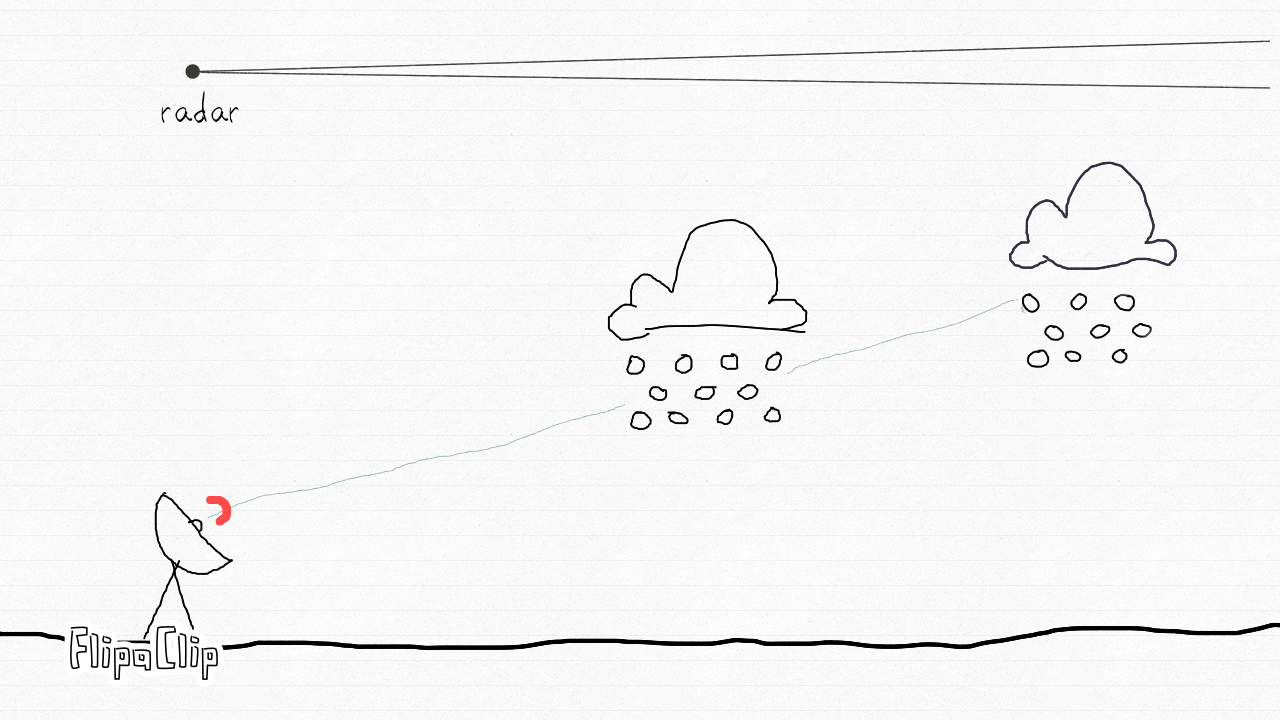 radar
FlipaClip